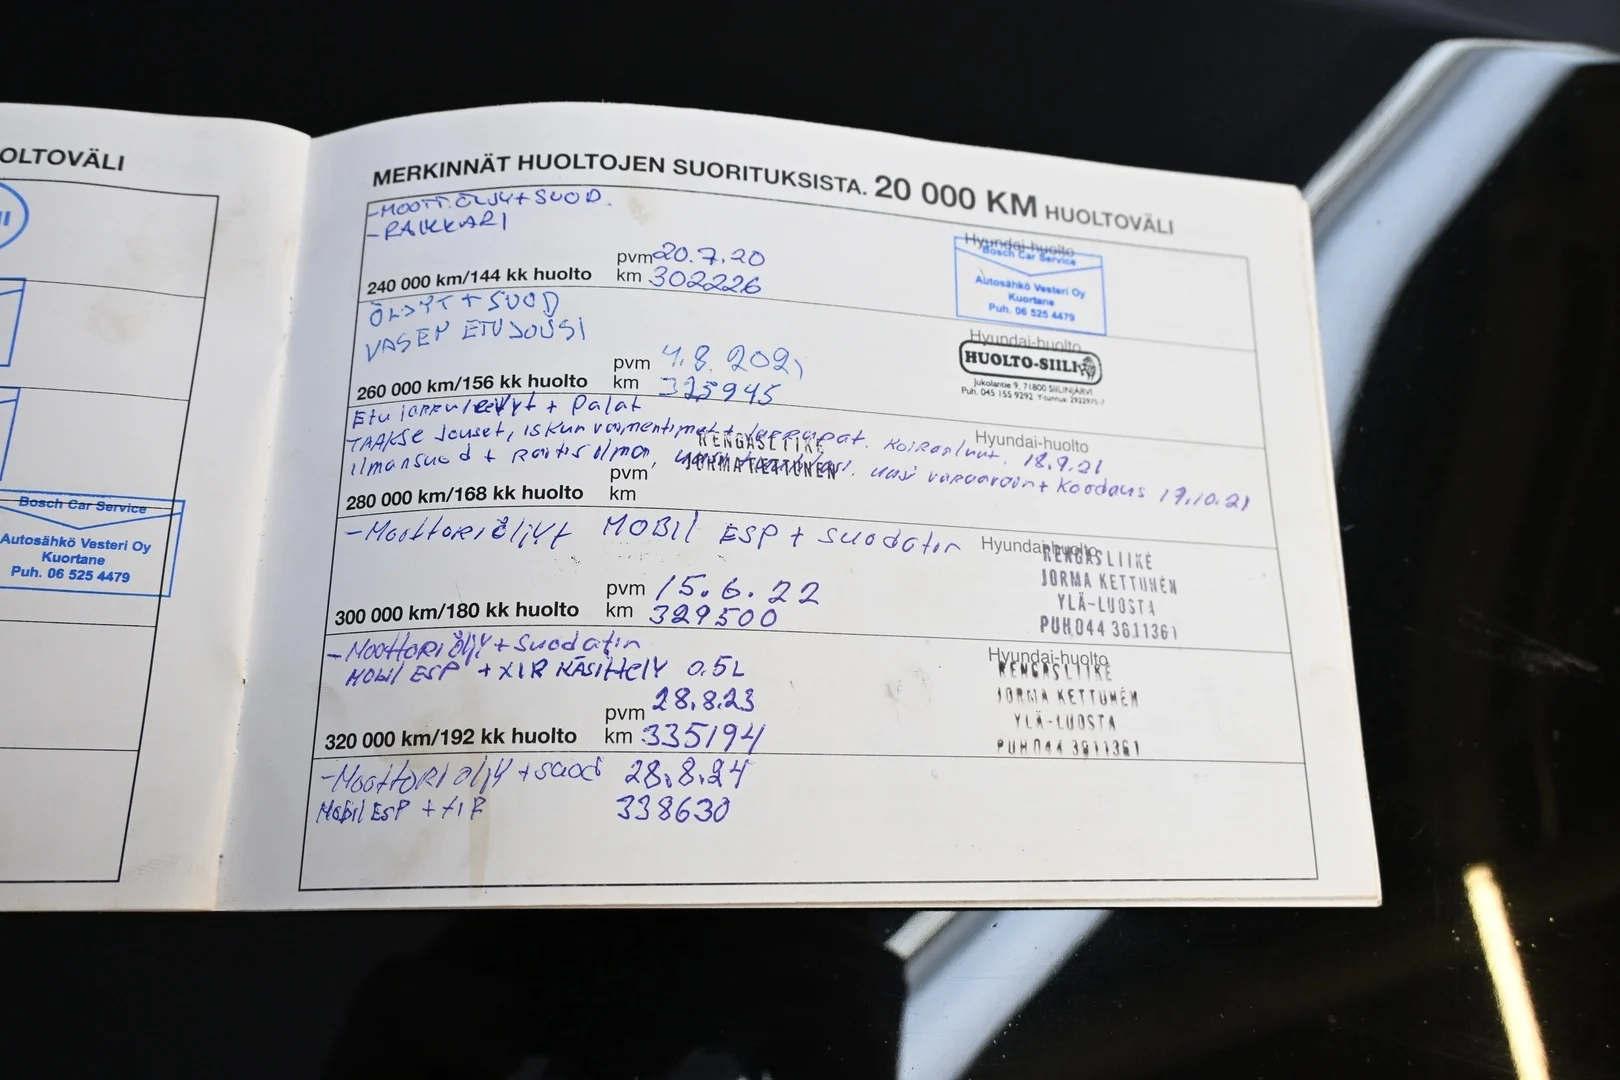 OLTOVÄLI
Bosch Car Service
Autosähkö Vesteri Oy
Kuortane
Puh. 06 525 4479
MERKINNÄT HUOLTOJEN SUORITUKSISTA. 20 000 KM HUOLTOVÄLI
-MOOTT.ÖLJY+SUOD.
-RAIKKARI
Hyundai-huolto
Bosch Car Service
Autosähkö Vesteri Oy
Kuortane
Puh. 06 525 4479
pvm 20.7.20
240 000 km/144 kk huolto km 302226
ÖLJYT + SUOD
VASEN ETUJOUSI
Hyundai-huolto
HUOLTO-SIILI
Jukolantie 9, 71800 SIILINJÄRVI
Puh. 045 155 9292 Y-tunnus: 2922975-7
pvm 4.8.2021
260 000 km/156 kk huolto km 325945
Etu jarrulevyt + Palat
Hyundai-huolto
TAAKSE Jouset, iskunvaimentimet + Jarrupat. Koiranluut. 18.9.21
RENGASLIIKE
JORMA KETTUNEN
ilmansuod + Raitisilma, uusi varaavain + Koodaus 19.10.21
pvm
280 000 km/168 kk huolto km
-Moottoriöljyt MOBIL ESP + suodatin
Hyundai-huolto
RENGASLIIKE
JORMA KETTUNEN
YLÄ-LUOSTA
PUH 044 3611361
pvm 15.6.22
300 000 km/180 kk huolto km 329500
-Moottoriöljy + Suodatin
MOBIL ESP + X1R KÄSITTELY 0.5L
Hyundai-huolto
RENGASLIIKE
JORMA KETTUNEN
YLÄ-LUOSTA
PUH 044 3611361
pvm 28.8.23
320 000 km/192 kk huolto km 335194
-Moottoriöljy + suod 28.8.24
Mobil ESP + X1R 338630